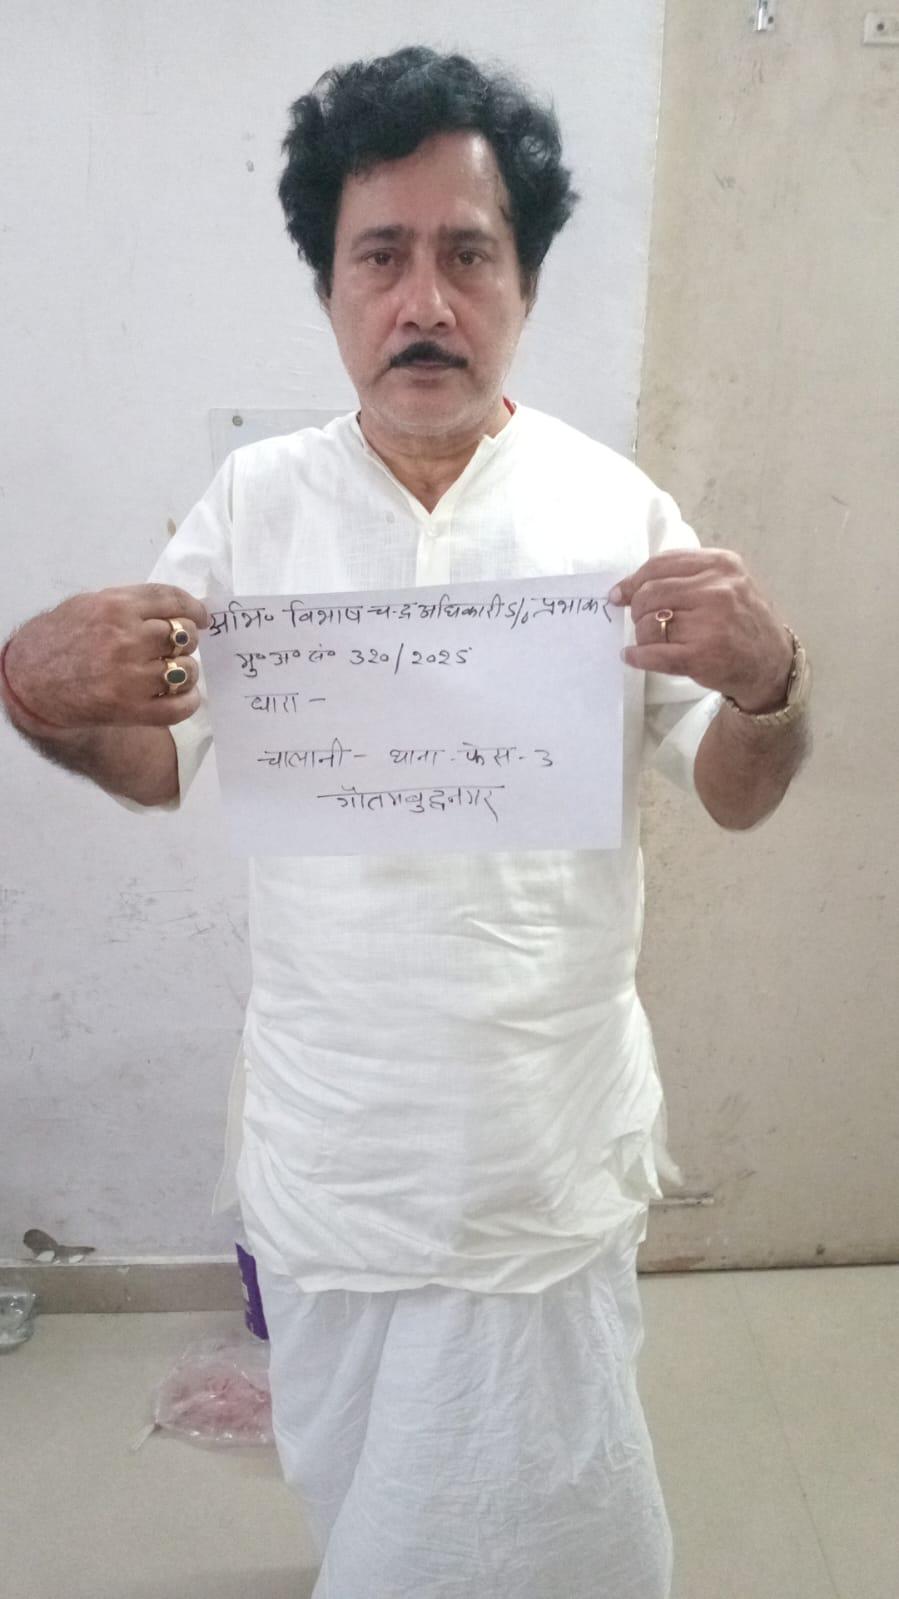 अभि० विभाष चन्द्र अधिकारी S/o प्रभाकर
मु०अ० सं० 320/2025
धारा -
चालानी - थाना - फेस - 3
गौतमबुद्धनगर